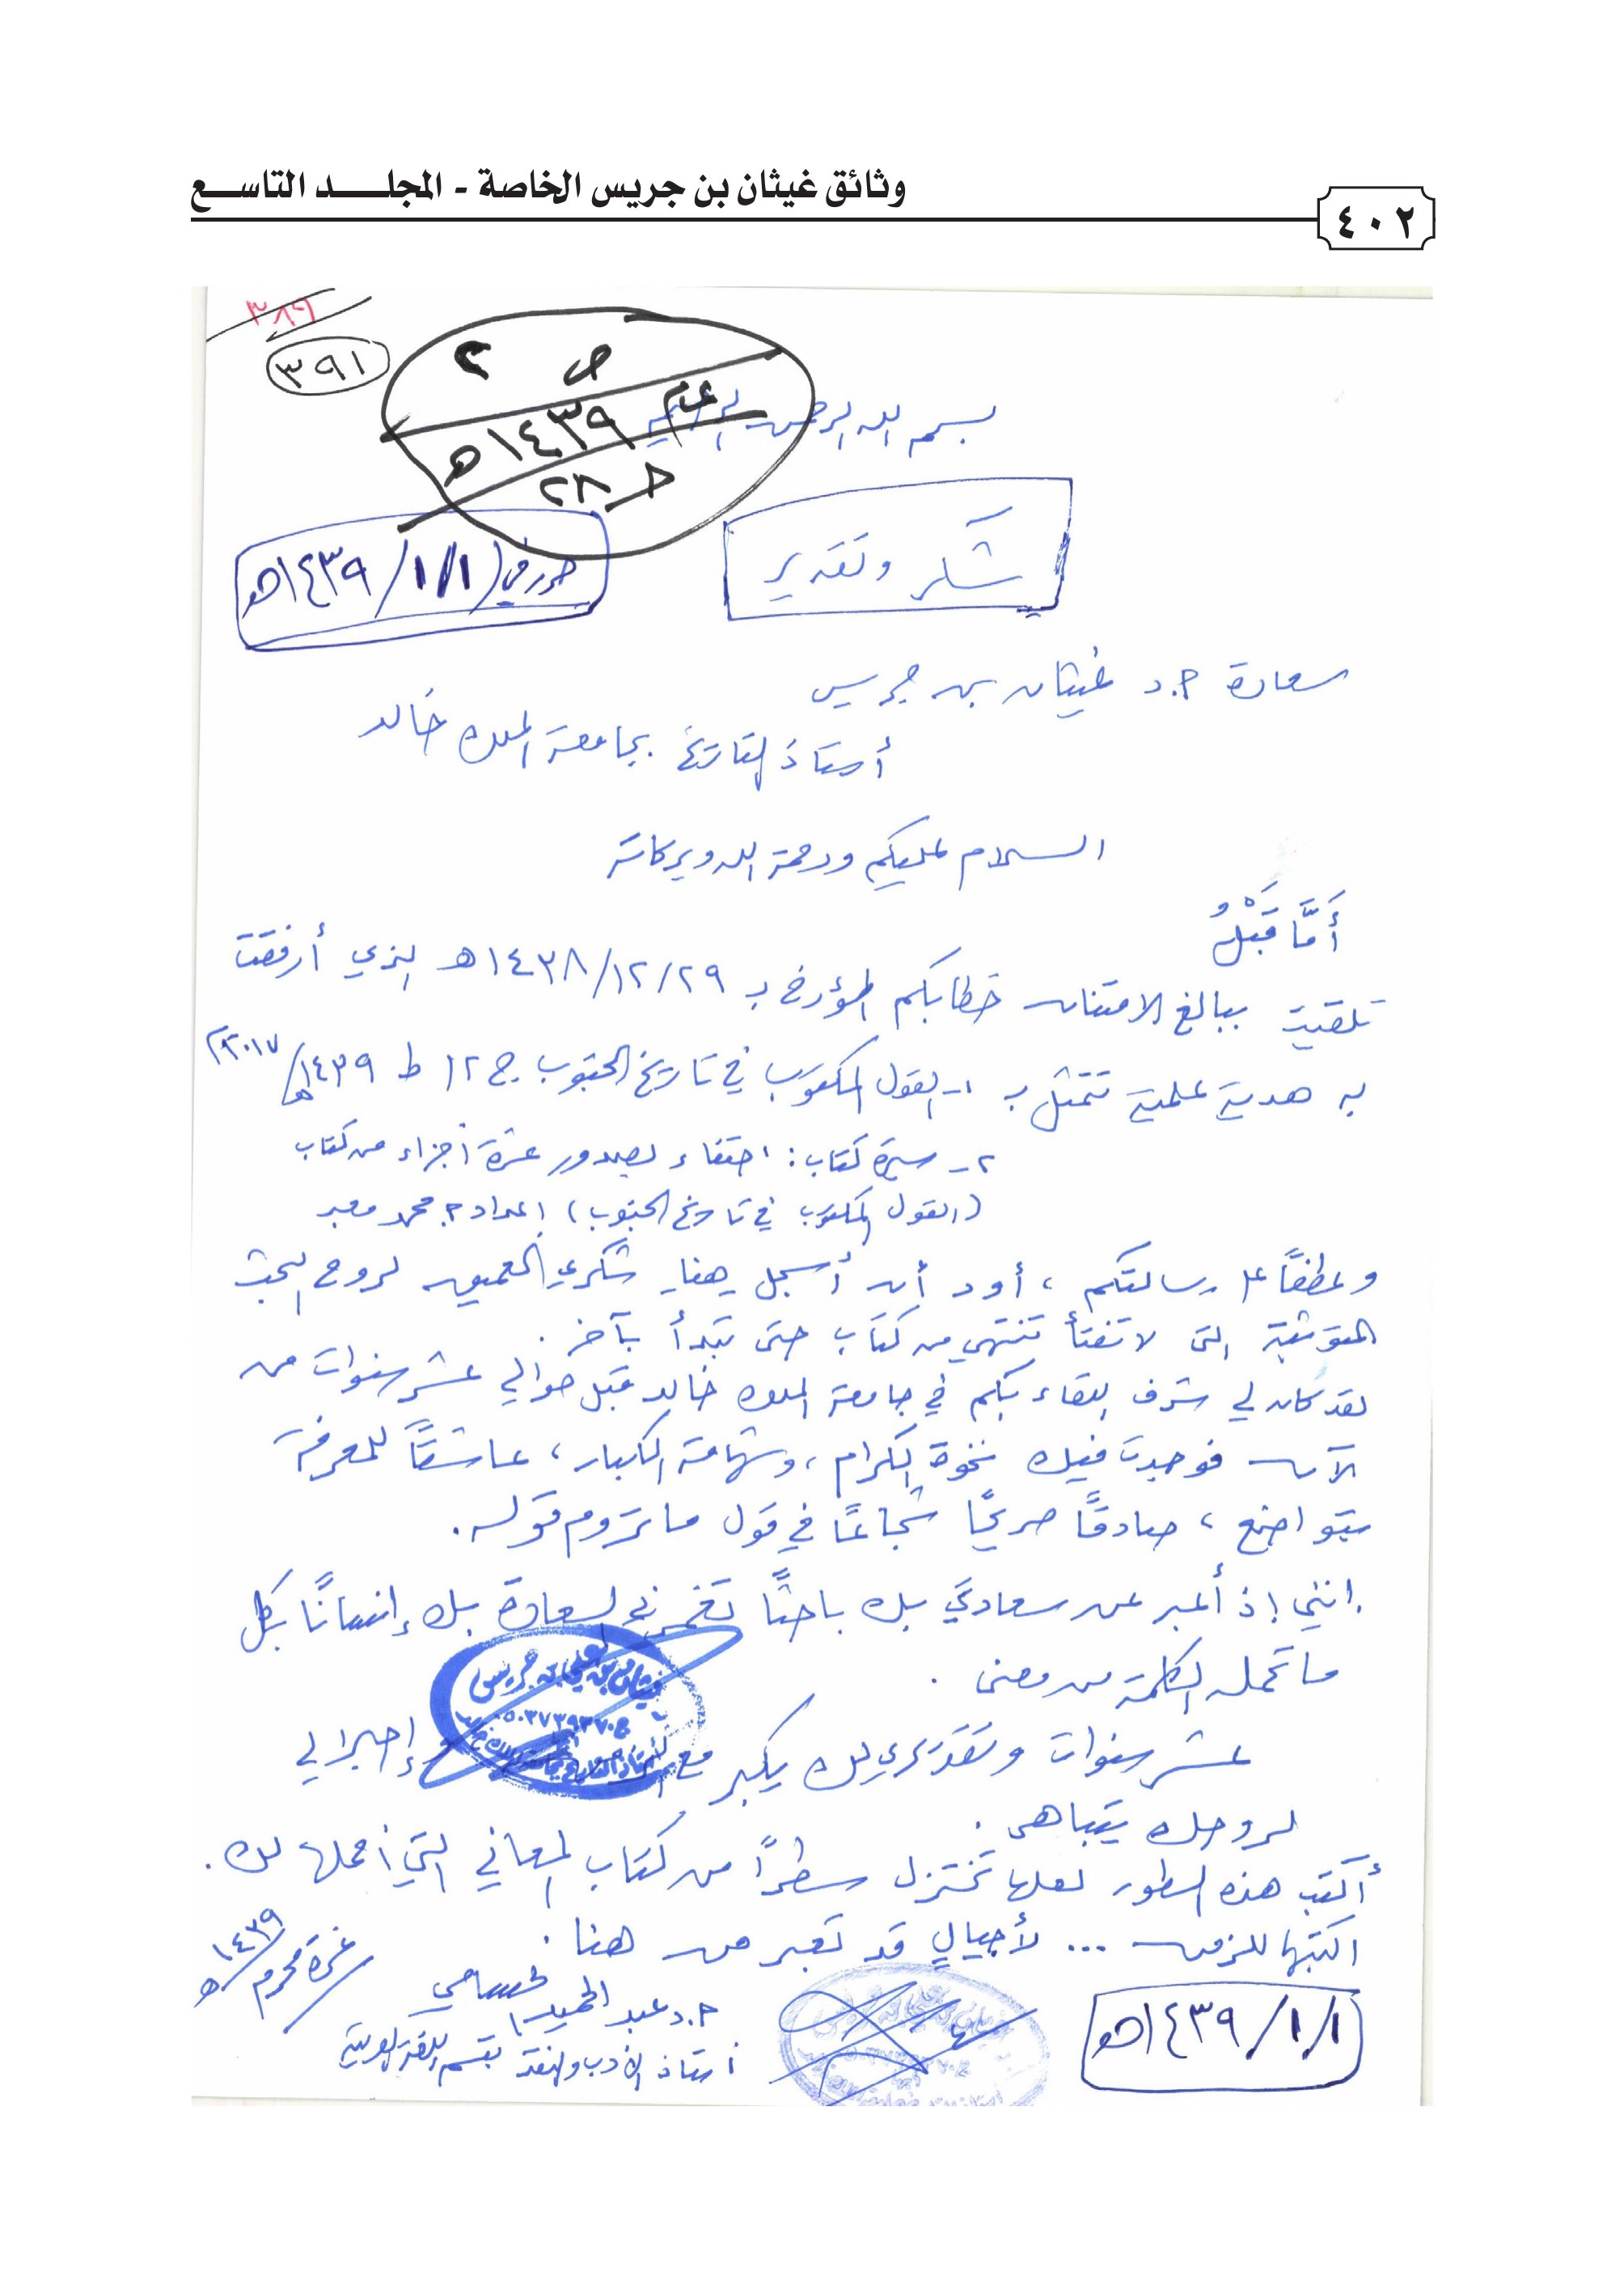 وثائق غيثان بن جريس الخاصة - المجلد التاسع
٤٠٢
٣٨٩
٣٩١
ص ٢
عام ١٤٣٩هـ
حـ ٢٨
بسم الله الرحمن الرحيم
شكر وتقدير
حرر في (١/١/١٤٣٩هـ
سعادة أ.د غيثان بن جريس
أستاذ التاريخ بجامعة الملك خالد
السلام عليكم ورحمة الله وبركاته
أَمَّا قَبْلُ
تلقيت ببالغ الامتنان خطابكم المؤرخ بـ ٢٩/١٢/١٤٣٨هـ الذي أرفقت
به هدية علمية تتمثل بـ ١- القول المكتوب في تاريخ الجنوب ج ١٢ ط ١٤٣٩هـ/٢٠١٧م
٢- سيرة كتاب: احتفاء بصدور عشرة أجزاء من كتاب
(القول المكتوب في تاريخ الجنوب) إعداد أ. محمد معبر
وعطفًا على رسالتكم، أود أن أسجل هنا شكري العميق لروح البحث
المتوثبة التي لا تفتأ تنتهي من كتاب حتى تبدأ بآخر.
لقد كان لي شرف اللقاء بكم في جامعة الملك خالد قبل حوالي عشر سنوات من
الآن فوجدت فيك نخوة الكرام، وشهامة الكبار، عاشقًا للمعرفة
بتواضع، صادقًا صريحًا شجاعًا في قول ما تروم قوله.
إنني إذ أعبر عن سعادتي بك باحثًا تغمرني السعادة بك إنسانًا بكل
ما تحمله الكلمة من معنى.
عشر سنوات وتقديري لك يكبر مع وإجلالي
لروحك يتباهى.
أكتب هذه السطور لعلها تختزل سطرًا من كتاب المعاني التي أحملها لك.
اكتبها للزمن ... لأجيالٍ قد تعبر من هنا.
غرة محرم/١٤٣٩هـ
أ.د عبد الحميد الحسامي
أستاذ الأدب والنقد بقسم اللغة العربية
١/١/١٤٣٩هـ